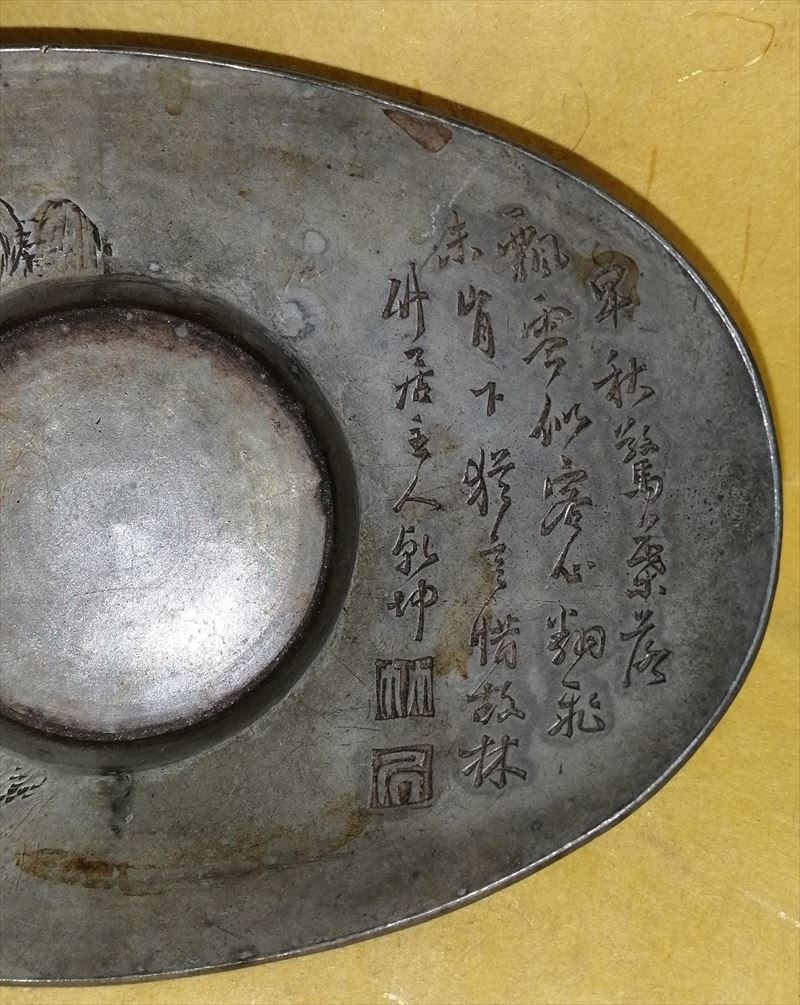 早秋驚葉落
飄零似客心翻飛
未肯下猶言惜故林
竹居主人乾坤
竹
居